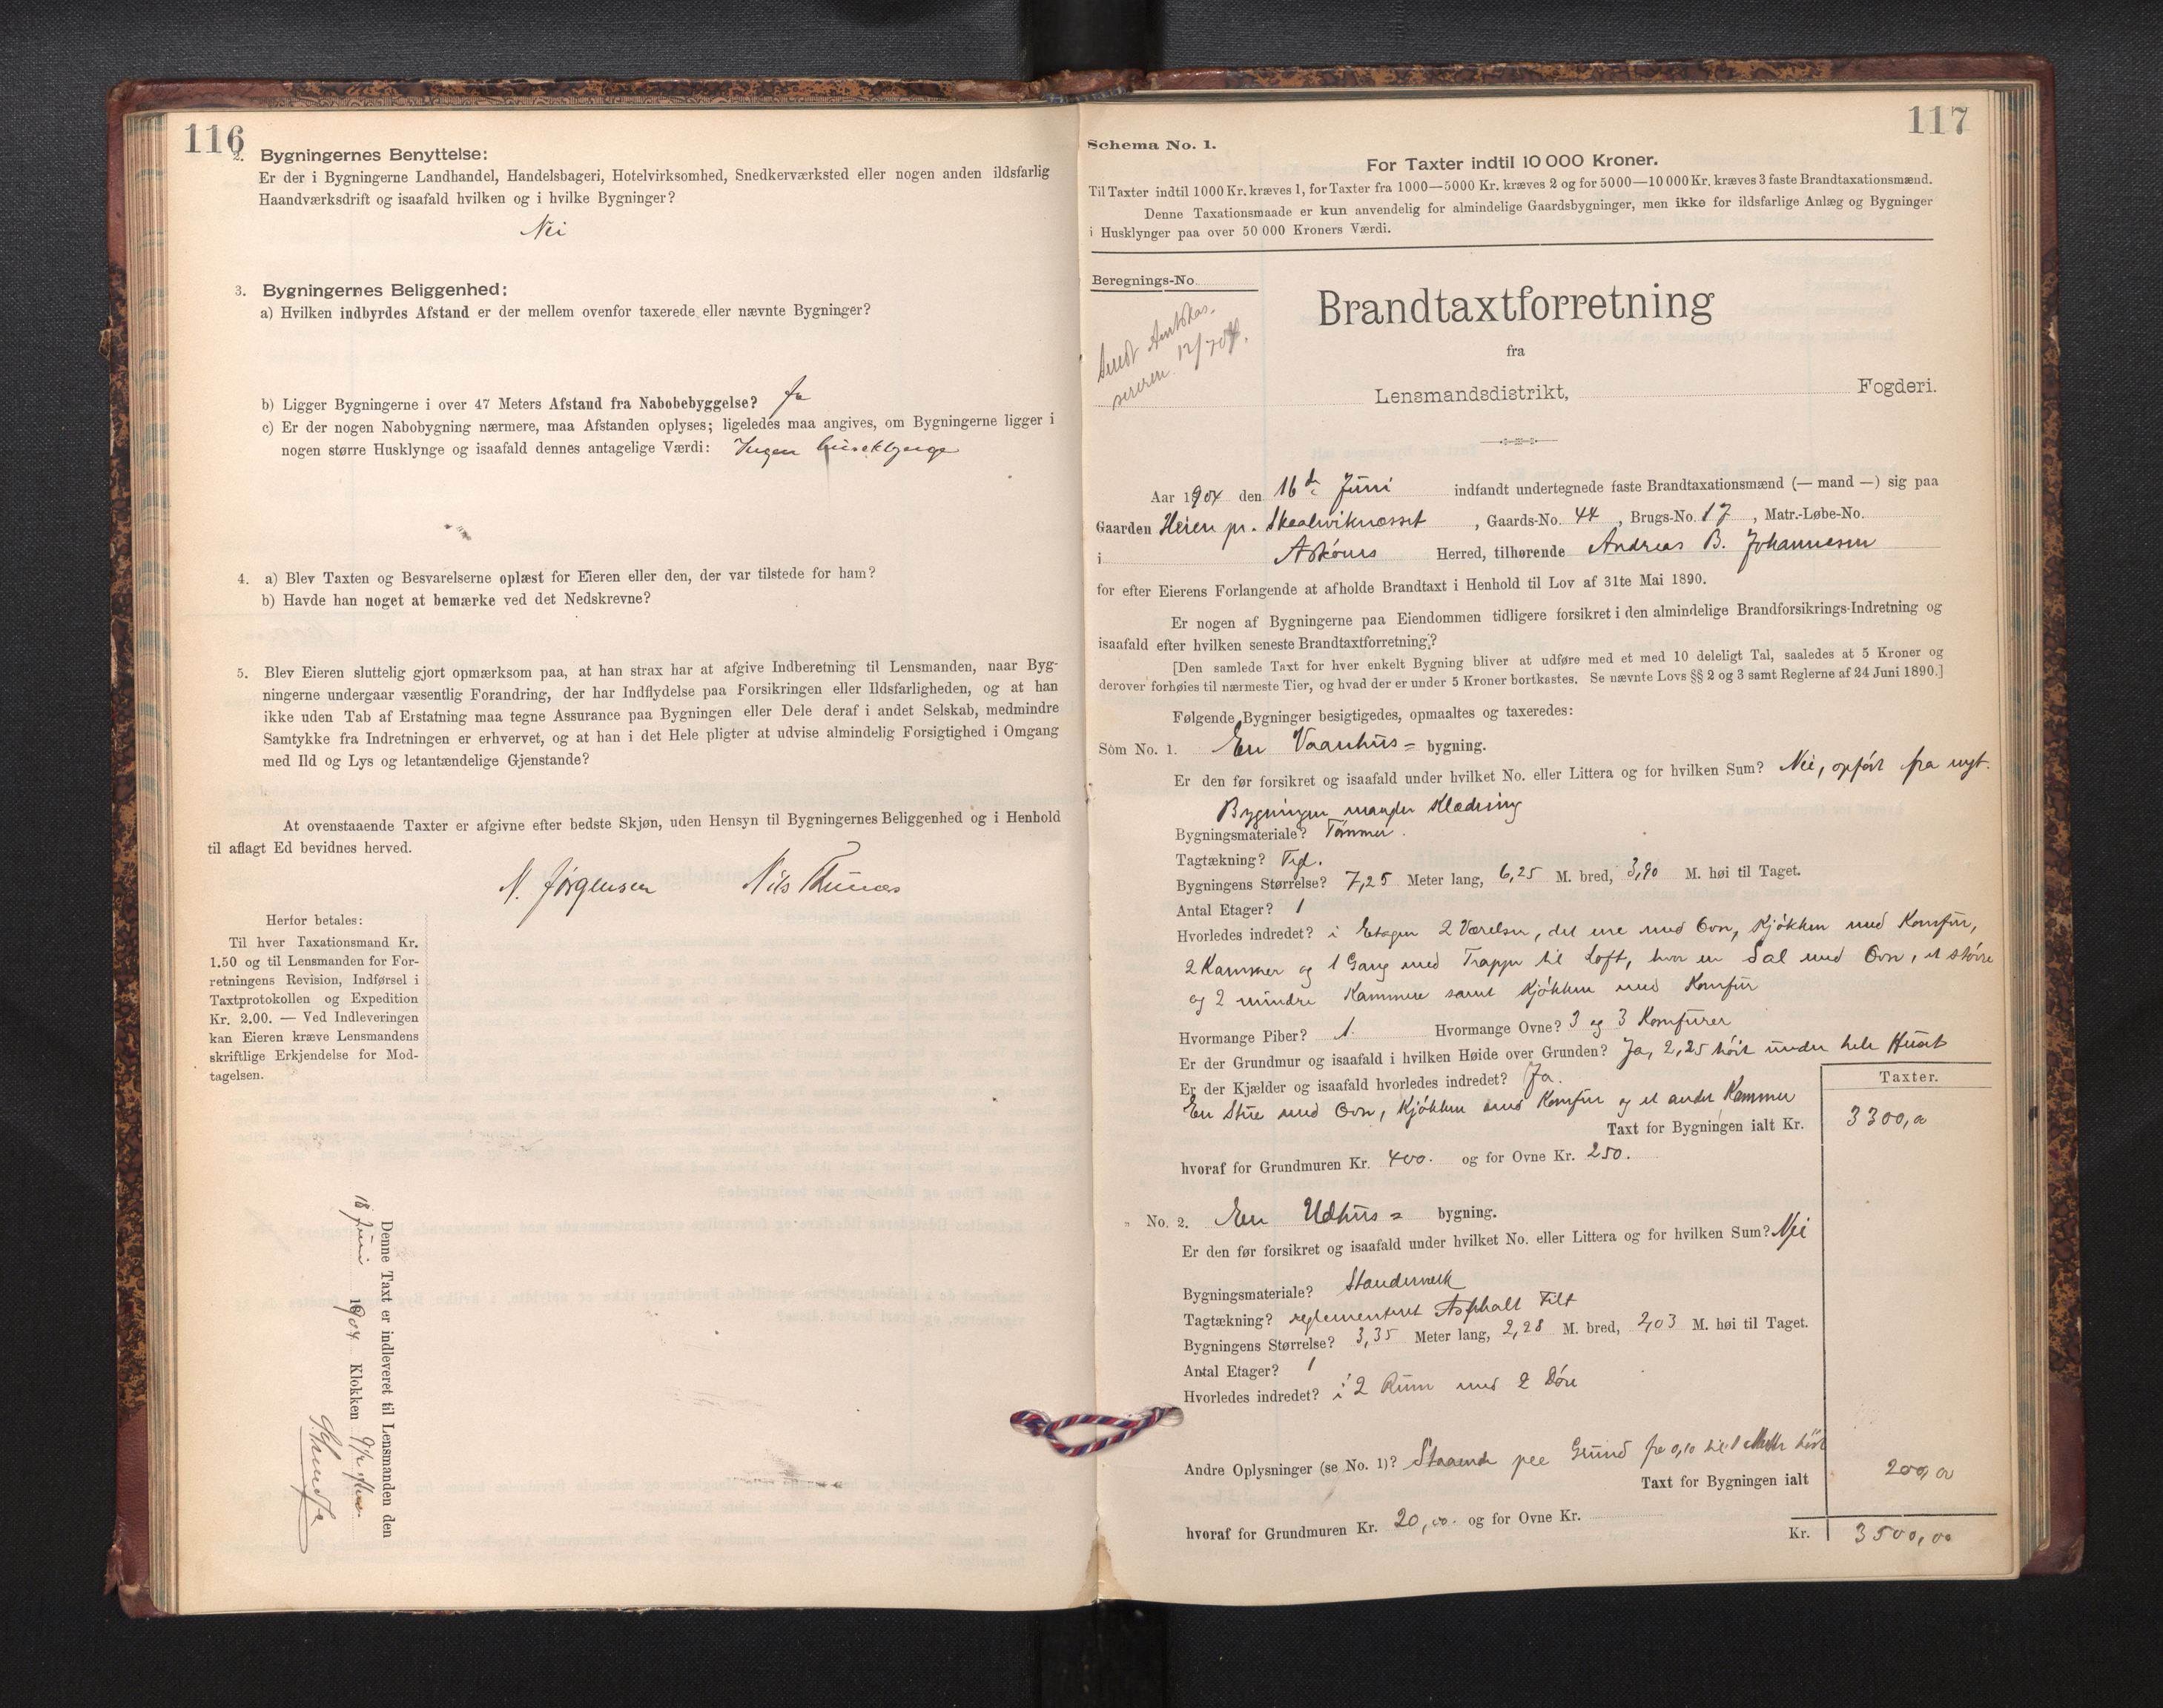 116
2. Bygningernes Benyttelse:
Er der i Bygningerne Landhandel, Handelsbageri, Hotelvirksomhed, Snedkerværksted eller nogen anden ildsfarlig
Haandværksdrift og isaafald hvilken og i hvilke Bygninger?
Nei
3. Bygningernes Beliggenhed:
a) Hvilken indbyrdes Afstand er der mellem ovenfor taxerede eller nævnte Bygninger?
b) Ligger Bygningerne i over 47 Meters Afstand fra Nabobebyggelse? Ja
c) Er der nogen Nabobygning nærmere, maa Afstanden oplyses; ligeledes maa angives, om Bygningerne ligger i
nogen større Husklynge og isaafald dennes antagelige Værdi: Ingen huseklynge
4. a) Blev Taxten og Besvarelserne oplæst for Eieren eller den, der var tilstede for ham?
b) Havde han noget at bemærke ved det Nedskrevne?
5. Blev Eieren sluttelig gjort opmærksom paa, at han strax har at afgive Indberetning til Lensmanden, naar Byg-
ningerne undergaar væsentlig Forandring, der har Indflydelse paa Forsikringen eller Ildsfarligheden, og at han
ikke uden Tab af Erstatning maa tegne Assurance paa Bygningen eller Dele deraf i andet Selskab, medmindre
Samtykke fra Indretningen er erhvervet, og at han i det Hele pligter at udvise almindelig Forsigtighed i Omgang
med Ild og Lys og letantændelige Gjenstande?
At ovenstaaende Taxter er afgivne efter bedste Skjøn, uden Hensyn til Bygningernes Beliggenhed og i Henhold
til aflagt Ed bevidnes herved.
N. Jørgensen Nils
Herfor betales:
Til hver Taxationsmand Kr.
1.50 og til Lensmanden for For-
retningens Revision, Indførsel i
Taxtprotokollen og Expedition
Kr. 2.00. — Ved Indleveringen
kan Eieren kræve Lensmandens
skriftlige Erkjendelse for Mod-
tagelsen.
Denne Taxt er indleveret til Lensmanden den
18 Juni 1904 Klokken 9½
117
Schema No. 1.
For Taxter indtil 10 000 Kroner.
Til Taxter indtil 1000 Kr. kræves 1, for Taxter fra 1000—5000 Kr. kræves 2 og for 5000—10 000 Kr. kræves 3 faste Brandtaxationsmænd.
Denne Taxationsmaade er kun anvendelig for almindelige Gaardsbygninger, men ikke for ildsfarlige Anlæg og Bygninger
i Husklynger paa over 50 000 Kroners Værdi.
Beregnings-No.
Sendt Amtskas-
sereren 12/7 04.
Brandtaxtforretning
fra
Lensmandsdistrikt, Fogderi.
Aar 1904 den 16de Juni indfandt undertegnede faste Brandtaxationsmænd (— mand —) sig paa
Gaarden Heien pr. Skaalviknæsset, Gaards-No. 44, Brugs-No. 17, Matr.-Løbe-No.
i Askøens Herred, tilhørende Andreas B. Johannesen
for efter Eierens Forlangende at afholde Brandtaxt i Henhold til Lov af 31te Mai 1890.
Er nogen af Bygningerne paa Eiendommen tidligere forsikret i den almindelige Brandforsikrings-Indretning og
isaafald efter hvilken seneste Brandtaxtforretning?
[Den samlede Taxt for hver enkelt Bygning bliver at udføre med et med 10 deleligt Tal, saaledes at 5 Kroner og
derover forhøies til nærmeste Tier, og hvad der er under 5 Kroner bortkastes. Se nævnte Lovs §§ 2 og 3 samt Reglerne af 24 Juni 1890.]
Følgende Bygninger besigtigedes, opmaaltes og taxeredes:
Som No. 1. En Vaanhus= bygning.
Er den før forsikret og isaafald under hvilket No. eller Littera og for hvilken Sum? Nei, opført fra nyt.
Bygningen mangler Klædning
Bygningsmateriale? Tømmer.
Tagtækning? Tegl.
Bygningens Størrelse? 7,25 Meter lang, 6,25 M. bred, 3,90 M. høi til Taget.
Antal Etager? 1
Hvorledes indredet? i Etagen 2 Værelser, det ene med Ovn, Kjøkken med Komfur,
2 Kammer og 1 Gang med Trappe til Loft, hvor en Sal med Ovn, et større
og 2 mindre Kammere samt Kjøkken med Komfur
Hvormange Piber? 1. Hvormange Ovne? 3 og 3 Komfurer
Er der Grundmur og isaafald i hvilken Høide over Grunden? Ja, 2,25 høit under hele Huset
Er der Kjælder og isaafald hvorledes indredet? Ja.
En Stue med Ovn, Kjøkken med Komfur og et andet Kammer
Taxter.
Taxt for Bygningen ialt Kr. 3300,00
hvoraf for Grundmuren Kr. 400. og for Ovne Kr. 250.
" No. 2. En Udhus= bygning.
Er den før forsikret og isaafald under hvilket No. eller Littera og for hvilken Sum? Nei
Bygningsmateriale? Standerværk
Tagtækning? reglementeret Asphalt Filt
Bygningens Størrelse? 3,35 Meter lang, 2,28 M. bred, 2,03 M. høi til Taget.
Antal Etager? 1
Hvorledes indredet? i 2 Rum med 2 Døre
Andre Oplysninger (se No. 1)? Staaende paa Grund fra 0,10 til 1 Meter høit
Taxt for Bygningen ialt 200,00
hvoraf for Grundmuren Kr. 20,00. og for Ovne Kr.
Kr. 3500,00